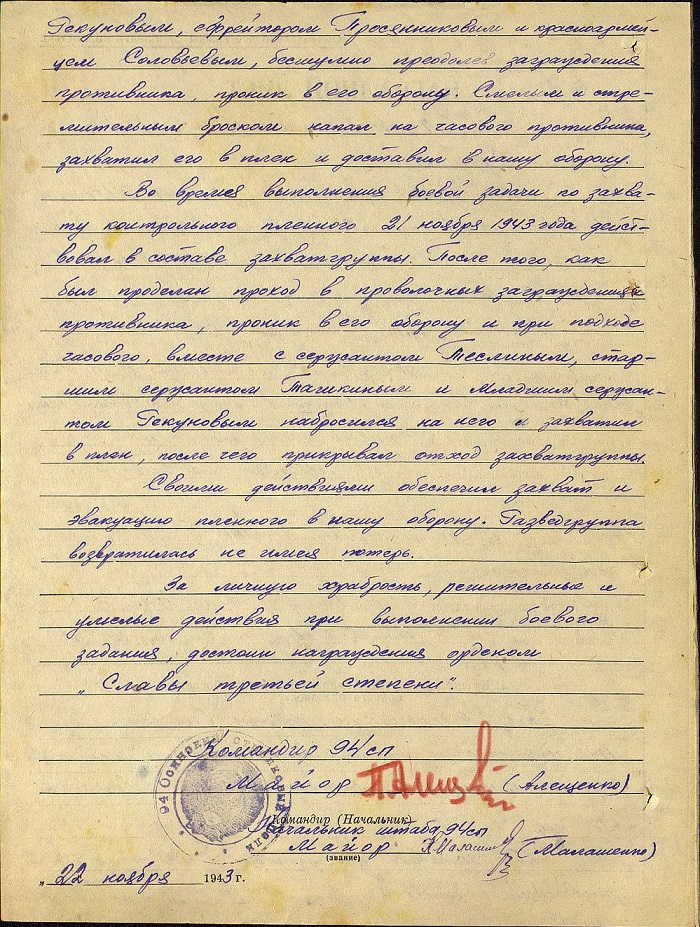 Гекуновым, ефрейтором Просянниковым и красноармей-
цем Соловьевым, бесшумно преодолев заграждения
противника, проник в его оборону. Смелым и стре-
мительным броском напал на часового противника,
захватил его в плен и доставил в нашу оборону.
Во время выполнения боевой задачи по захва-
ту контрольного пленного 21 ноября 1943 года дейст-
вовал в составе захватгруппы. После того, как
был проделан проход в проволочных заграждениях
противника, проник в его оборону и при подходе
часового, вместе с сержантом Теслиным, стар-
шим сержантом Тачикиным и Младшим сержан-
том Гекуновым набросился на него и захватил
в плен, после чего прикрывал отход захватгруппы.
Своими действиями обеспечил захват и
эвакуацию пленного в нашу оборону. Разведгруппа
возвратилась не имея потерь.
За личную храбрость, решительные и
умелые действия при выполнении боевого
задания, достоин награждения орденом
„Славы третьей степени".
Командир 94 сп
Майор (Алещенко)
Командир (Начальник)
Начальник штаба 94 сп
Майор (Малашенко)
(звание)
„22 ноября 1943 г.